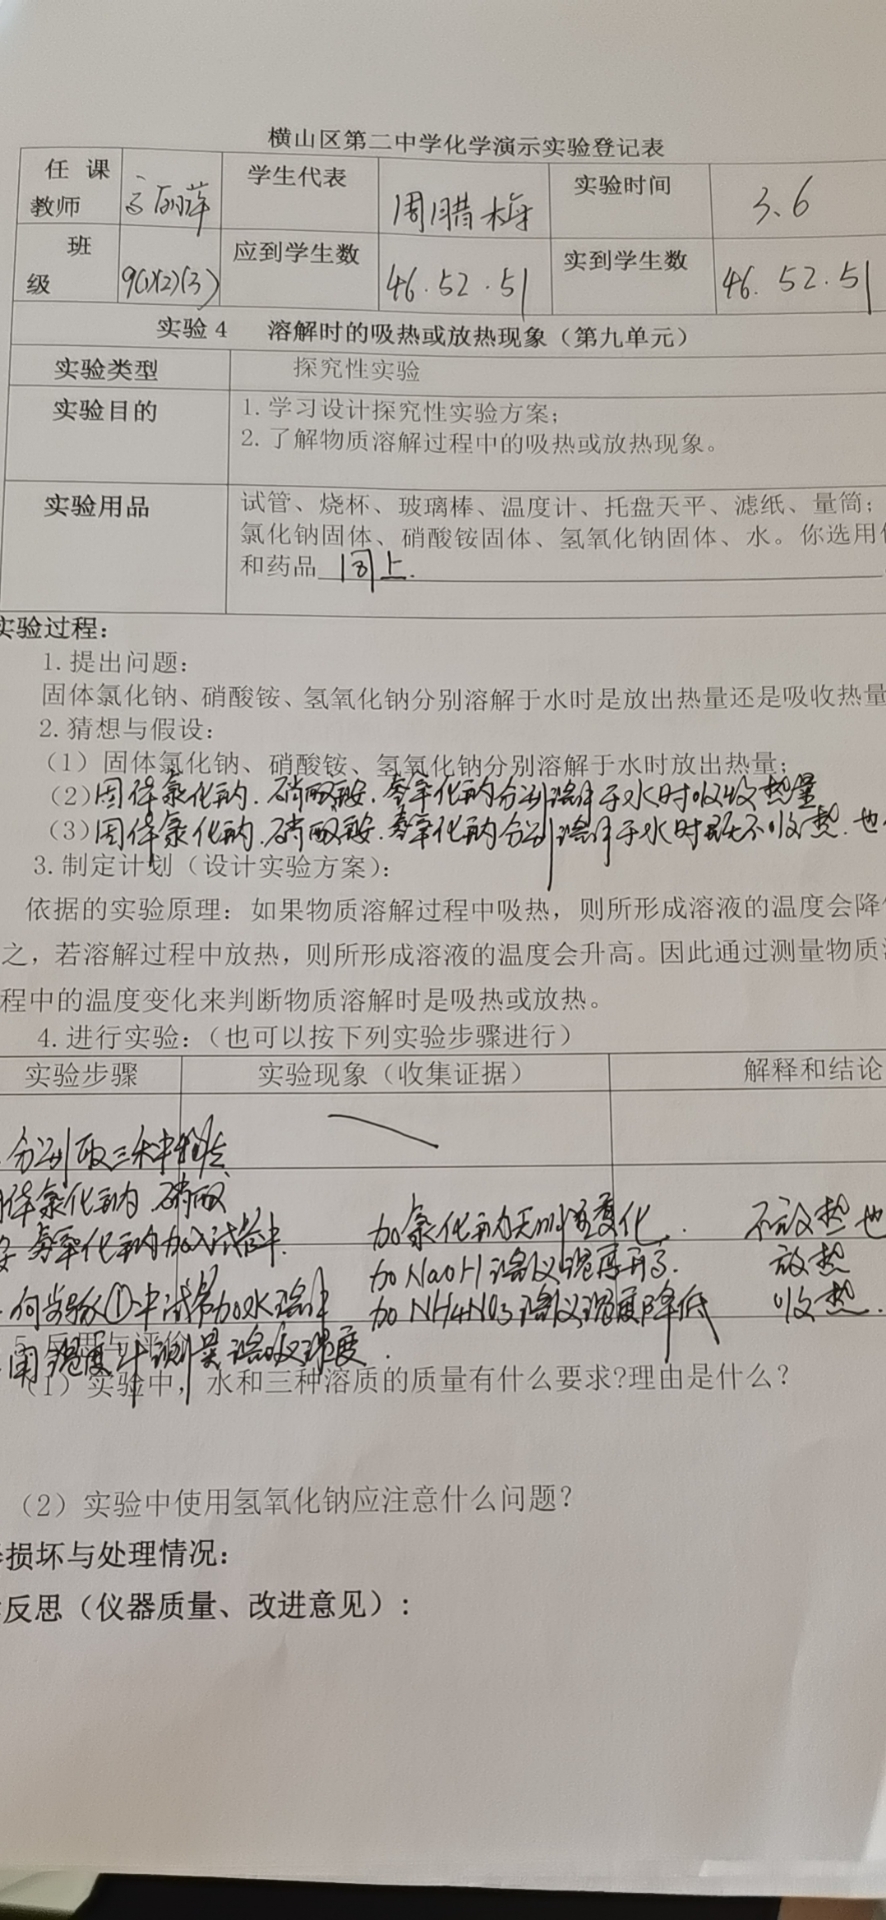 横山区第二中学化学演示实验登记表
任 课 教师 学生代表 周腊梅 实验时间 3.6
班 级 9(1)(2)(3) 应到学生数 46.52.51 实到学生数 46.52.51
实验4 溶解时的吸热或放热现象（第九单元）
实验类型 探究性实验
实验目的 1.学习设计探究性实验方案；
2.了解物质溶解过程中的吸热或放热现象。
实验用品 试管、烧杯、玻璃棒、温度计、托盘天平、滤纸、量筒；
氯化钠固体、硝酸铵固体、氢氧化钠固体、水。你选用
和药品 同上.
实验过程：
1.提出问题：
固体氯化钠、硝酸铵、氢氧化钠分别溶解于水时是放出热量还是吸收热量
2.猜想与假设：
（1）固体氯化钠、硝酸铵、氢氧化钠分别溶解于水时放出热量；
（2）固体氯化钠.硝酸铵.氢氧化钠分别溶解于水时吸收热量
（3）固体氯化钠.硝酸铵.氢氧化钠分别溶解于水时既不吸热.也
3.制定计划（设计实验方案）：
依据的实验原理：如果物质溶解过程中吸热，则所形成溶液的温度会降
之，若溶解过程中放热，则所形成溶液的温度会升高。因此通过测量物质
程中的温度变化来判断物质溶解时是吸热或放热。
4.进行实验：（也可以按下列实验步骤进行）
实验步骤 实验现象（收集证据） 解释和结论
分别取三木中
体氯化钠 硝酸
氢氧化钠加入试管中. 加氯化钠无明显变化. 不放热也
加NaOH溶液温度升高. 放热
向步骤①中试管加水溶解 加NH4NO3溶液温度降低 吸热.
用温度计测量溶液温度.
5.反思与评价
（1）实验中，水和三种溶质的质量有什么要求?理由是什么？
（2）实验中使用氢氧化钠应注意什么问题？
损坏与处理情况：
反思（仪器质量、改进意见）：